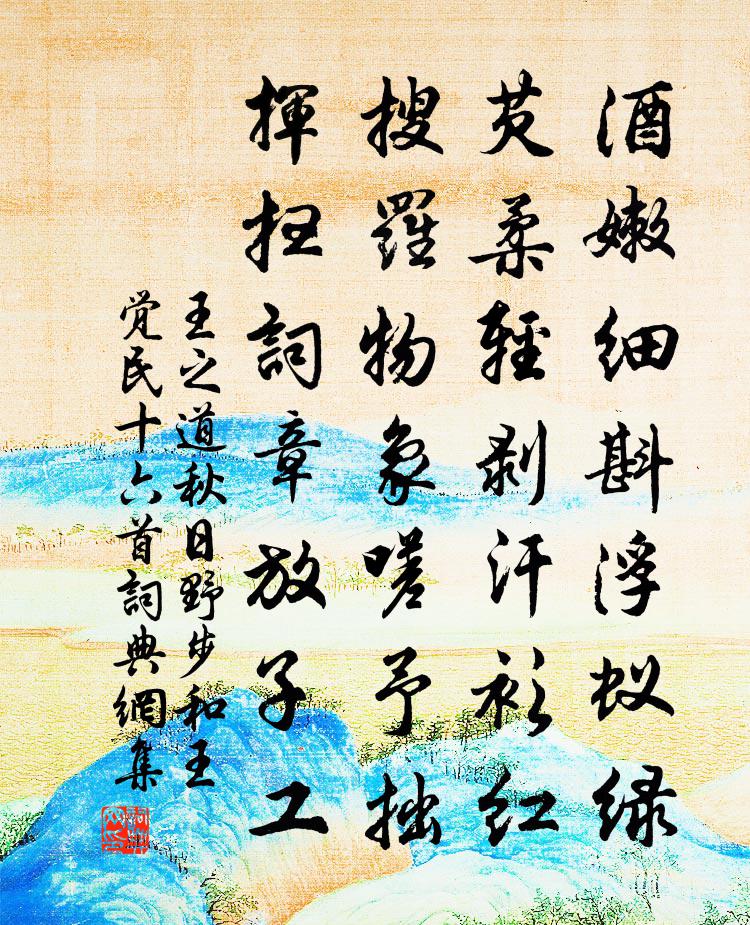 酒嫩细斟浮蚁绿
芡柔轻剥汗衫红
搜羅物象嗟予拙
揮扫詞章放子工
王之道秋日野步和王
觉民十六首詞典網集